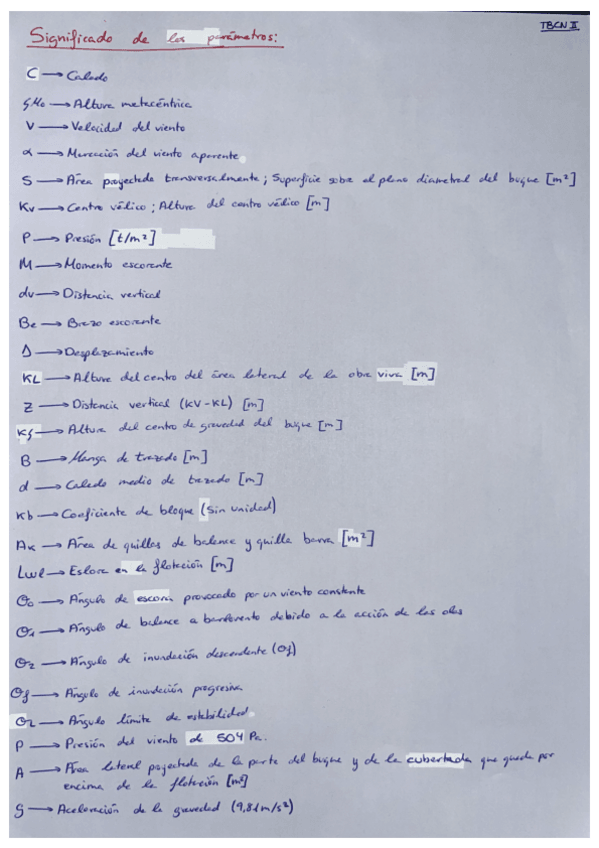 TBCN II
Significado de los parámetros:
C → Calado
GMo → Altura metacéntrica
V → Velocidad del viento
α → Marcación del viento aparente.
S → Área proyectada transversalmente; Superficie sobre el plano diametral del buque [m²]
Kv → Centro vélico; Altura del centro vélico [m]
P → Presión [t/m²]
M → Momento escorante
dv → Distancia vertical
Be → Brazo escorante
Δ → Desplazamiento
KL → Altura del centro del área lateral de la obra viva [m]
Z → Distancia vertical (KV-KL) [m]
Kg → Altura del centro de gravedad del buque [m]
B → Manga de trazado [m]
d → Calado medio de trazado [m]
Kb → Coeficiente de bloque (Sin unidad)
Ak → Área de quillas de balance y quilla barra [m²]
Lwl → Eslora en la flotación [m]
Θ₀ → Ángulo de escora provocado por un viento constante
Θ₁ → Ángulo de balance a barlovento debido a la acción de las olas
Θ₂ → Ángulo de inundación descendente (Θf)
Θf → Ángulo de inundación progresiva
Θ₂ → Ángulo límite de estabilidad.
P → Presión del viento de 504 Pa.
A → Área lateral proyectada de la parte del buque y de la cubertada que queda por
encima de la flotación [m²]
g → Aceleración de la gravedad (9,81m/s²)